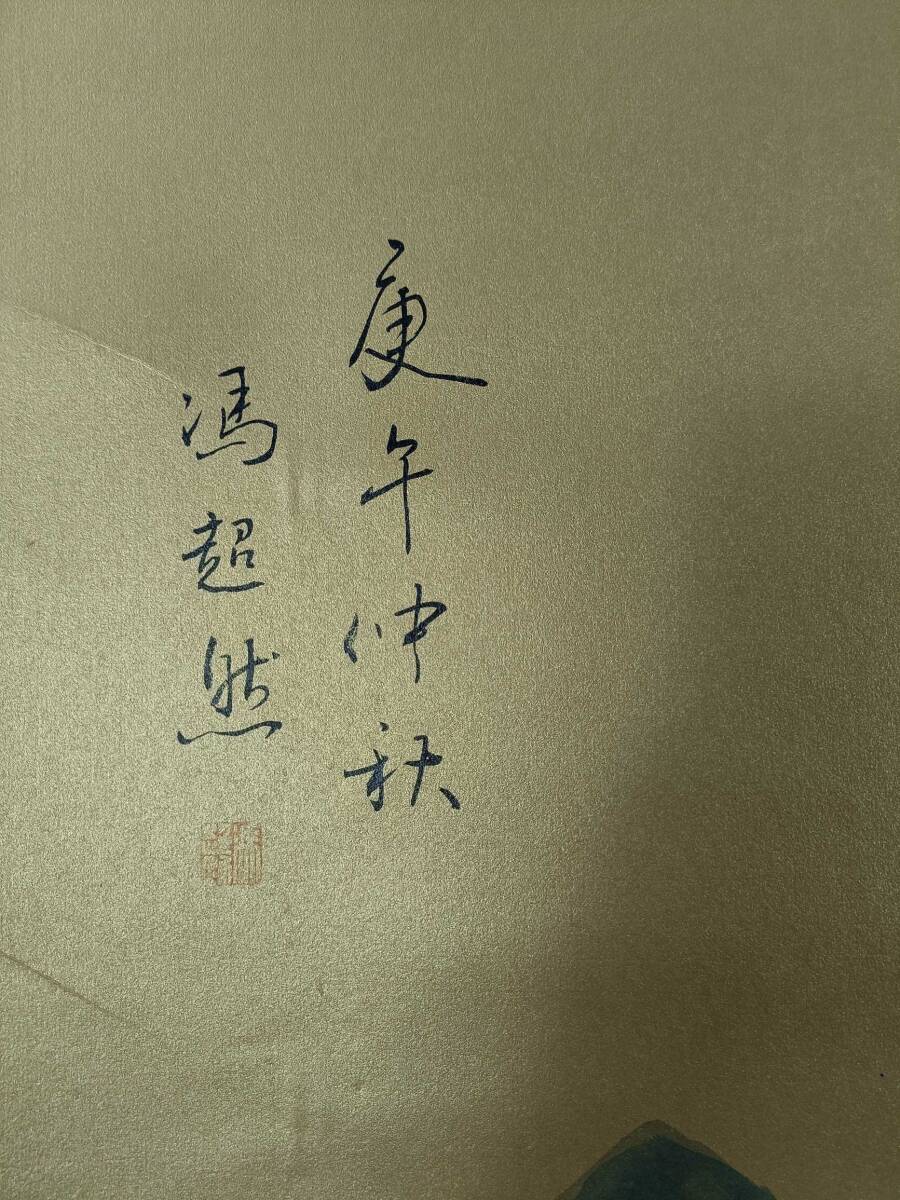 庚午仲秋
馮超然